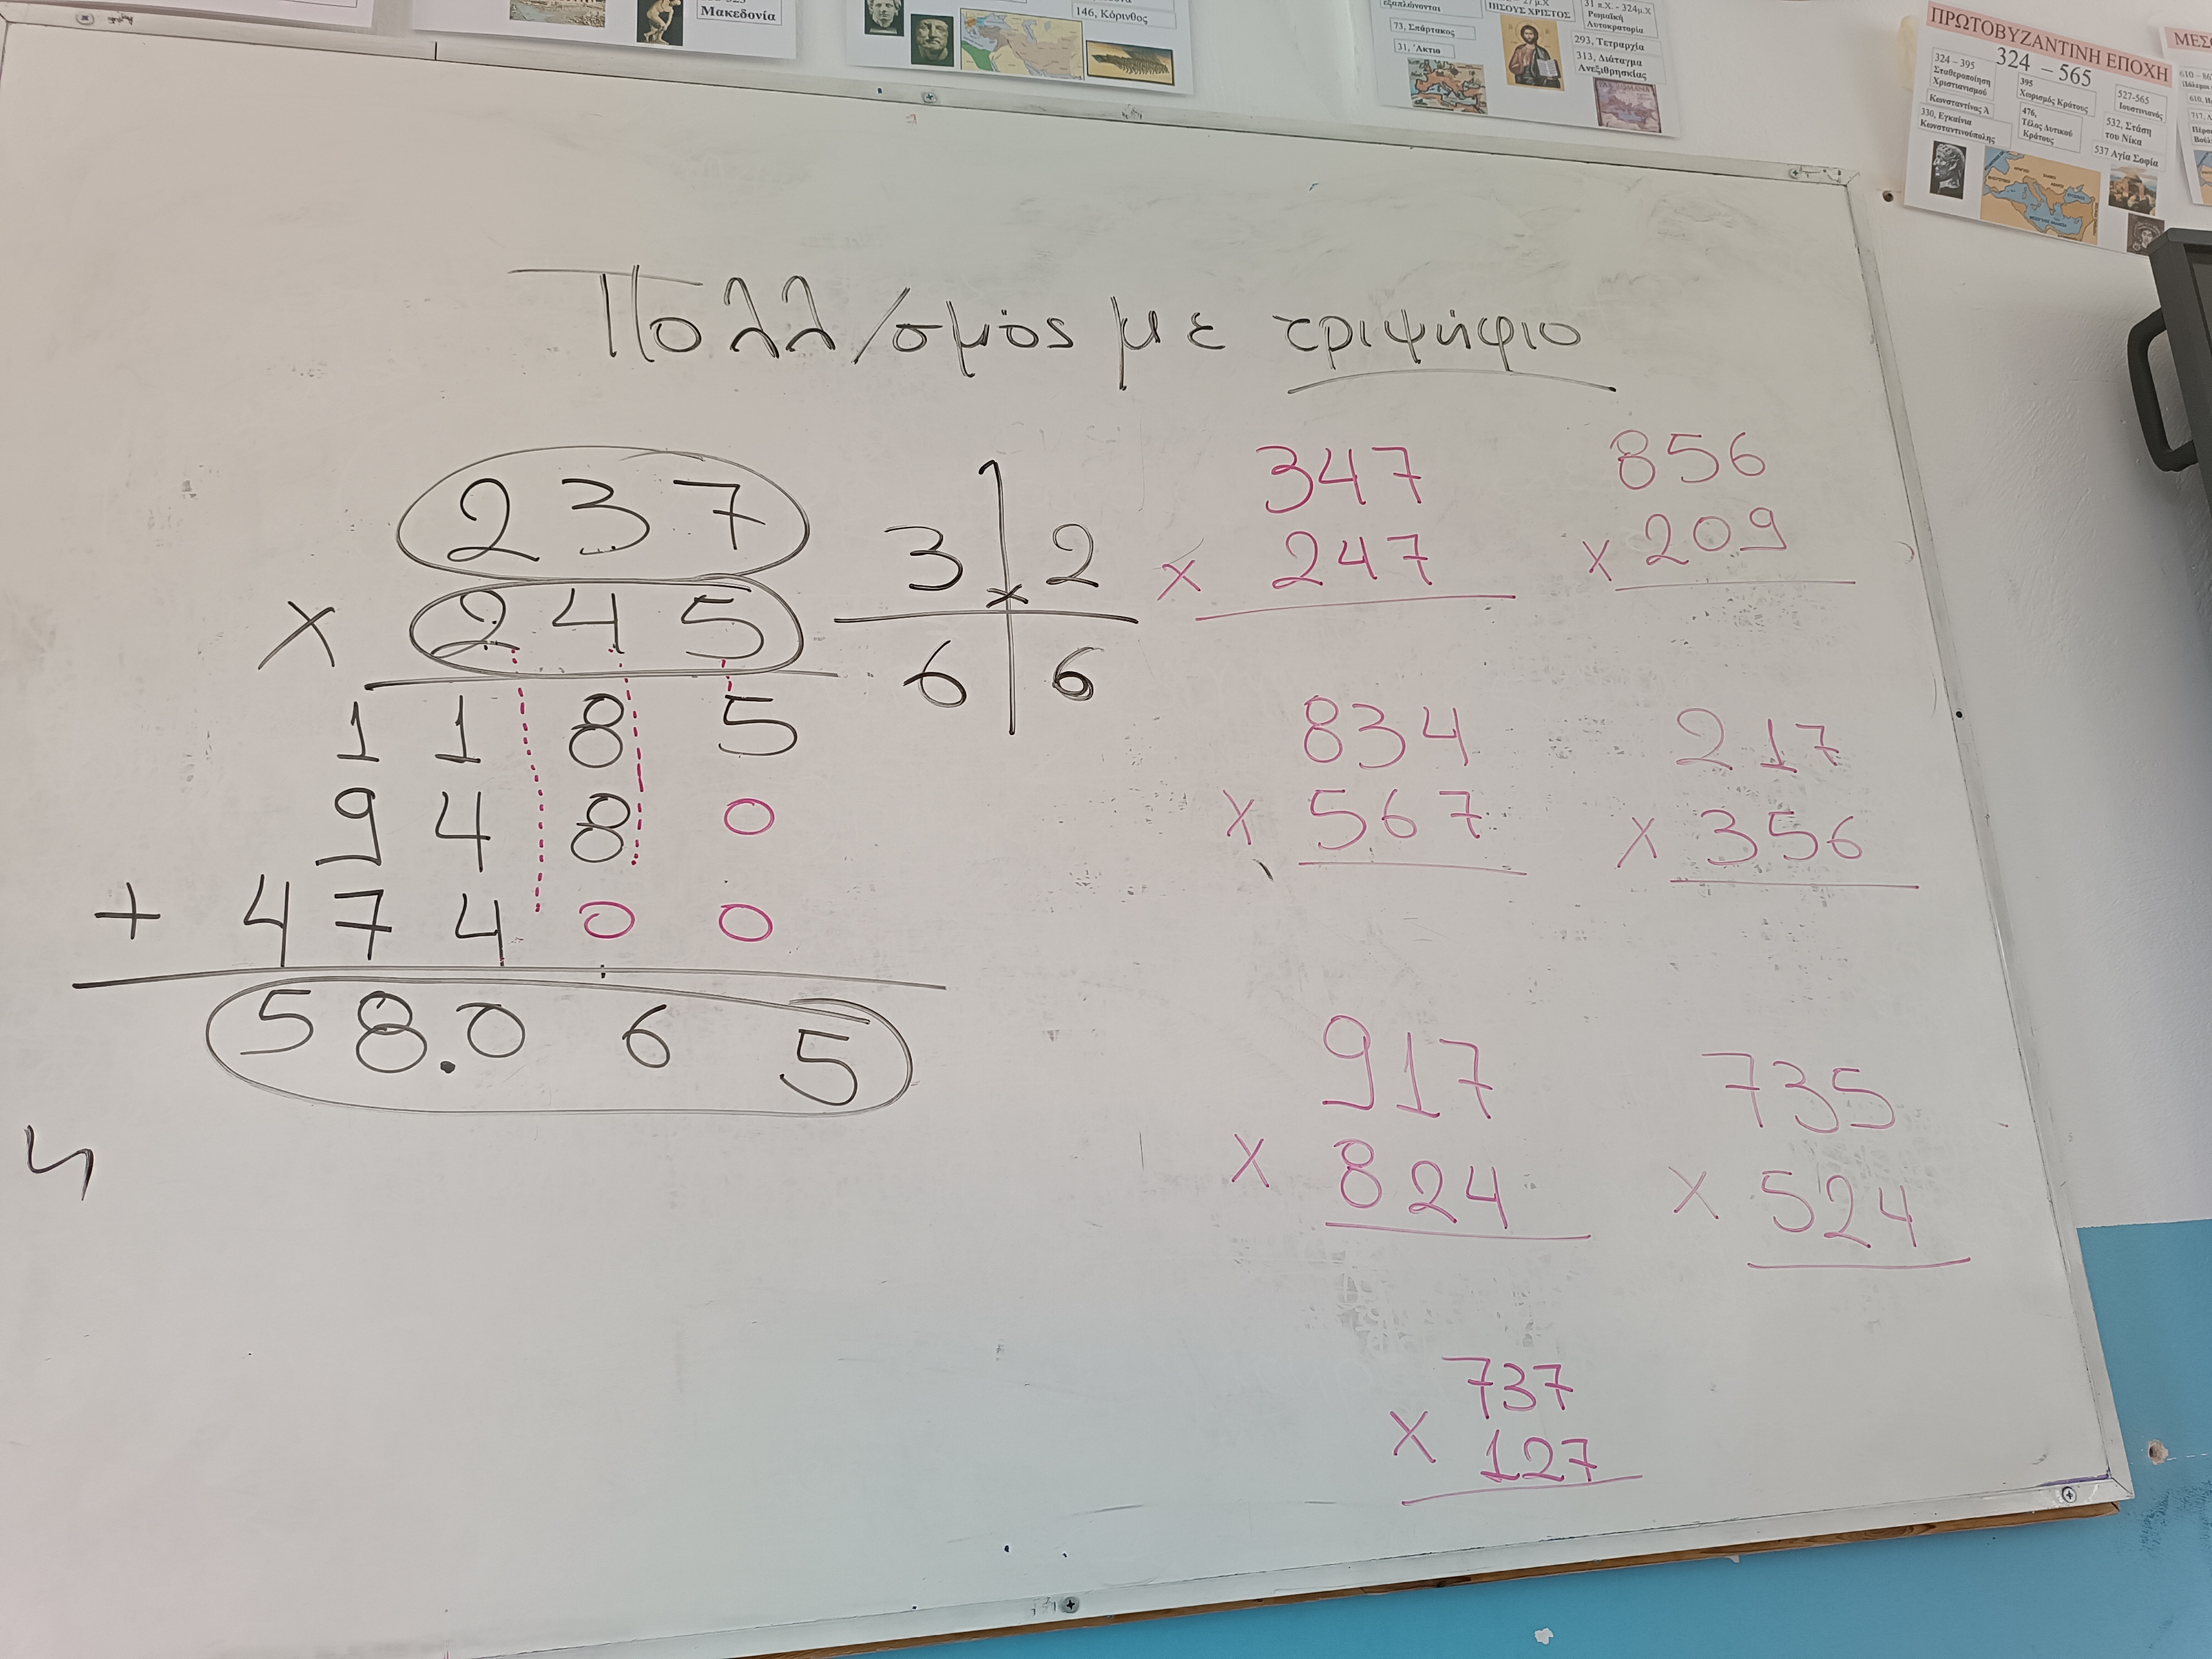 Μακεδονία
146, Κόρινθος
εξαπλώνονται
73, Σπάρτακος
31, Άκτιο
ΙΗΣΟΥΣ ΧΡΙΣΤΟΣ
31 π.Χ. - 324μ.Χ
Ρωμαϊκή
Αυτοκρατορία
293, Τετραρχία
313, Διάταγμα
Ανεξιθρησκίας
ΠΡΩΤΟΒΥΖΑΝΤΙΝΗ ΕΠΟΧΗ
324 – 565
324 – 395
Σταθεροποίηση
Χριστιανισμού
Κωνσταντίνος Ά
330, Εγκαίνια
Κωνσταντινούπολης
395
Χωρισμός Κράτους
476,
Τέλος Δυτικού
Κράτους
527-565
Ιουστινιανός
532, Στάση
του Νίκα
537 Αγία Σοφία
Πολλ/σμός με τριψήφιο
237
x 245
1185
9480
+ 47400
58.065
3 2
x
6 6
347
x 247
856
x 209
834
x 567
217
x 356
917
x 824
735
x 524
737
x 127